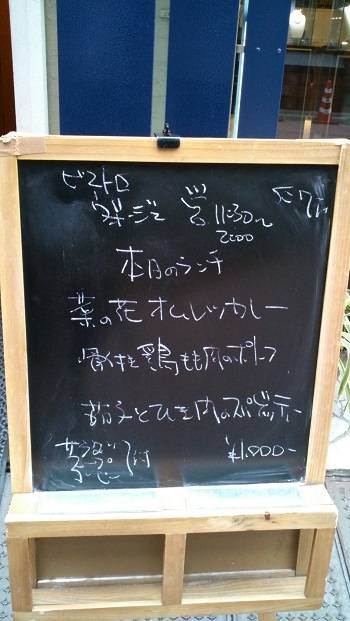 ビストロ
ヴィージュ
11:30〜
2:00
本日のランチ
菜の花オムレツカレー
骨付き鶏もも肉のポトフ
茄子とひき肉のスパゲッティー
サラダ
スープ
付
¥1,000-